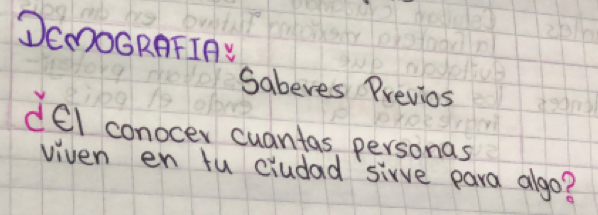 DEMOGRAFIA:
Saberes Previos
¿El conocer cuantas personas
viven en tu ciudad sirve para algo?